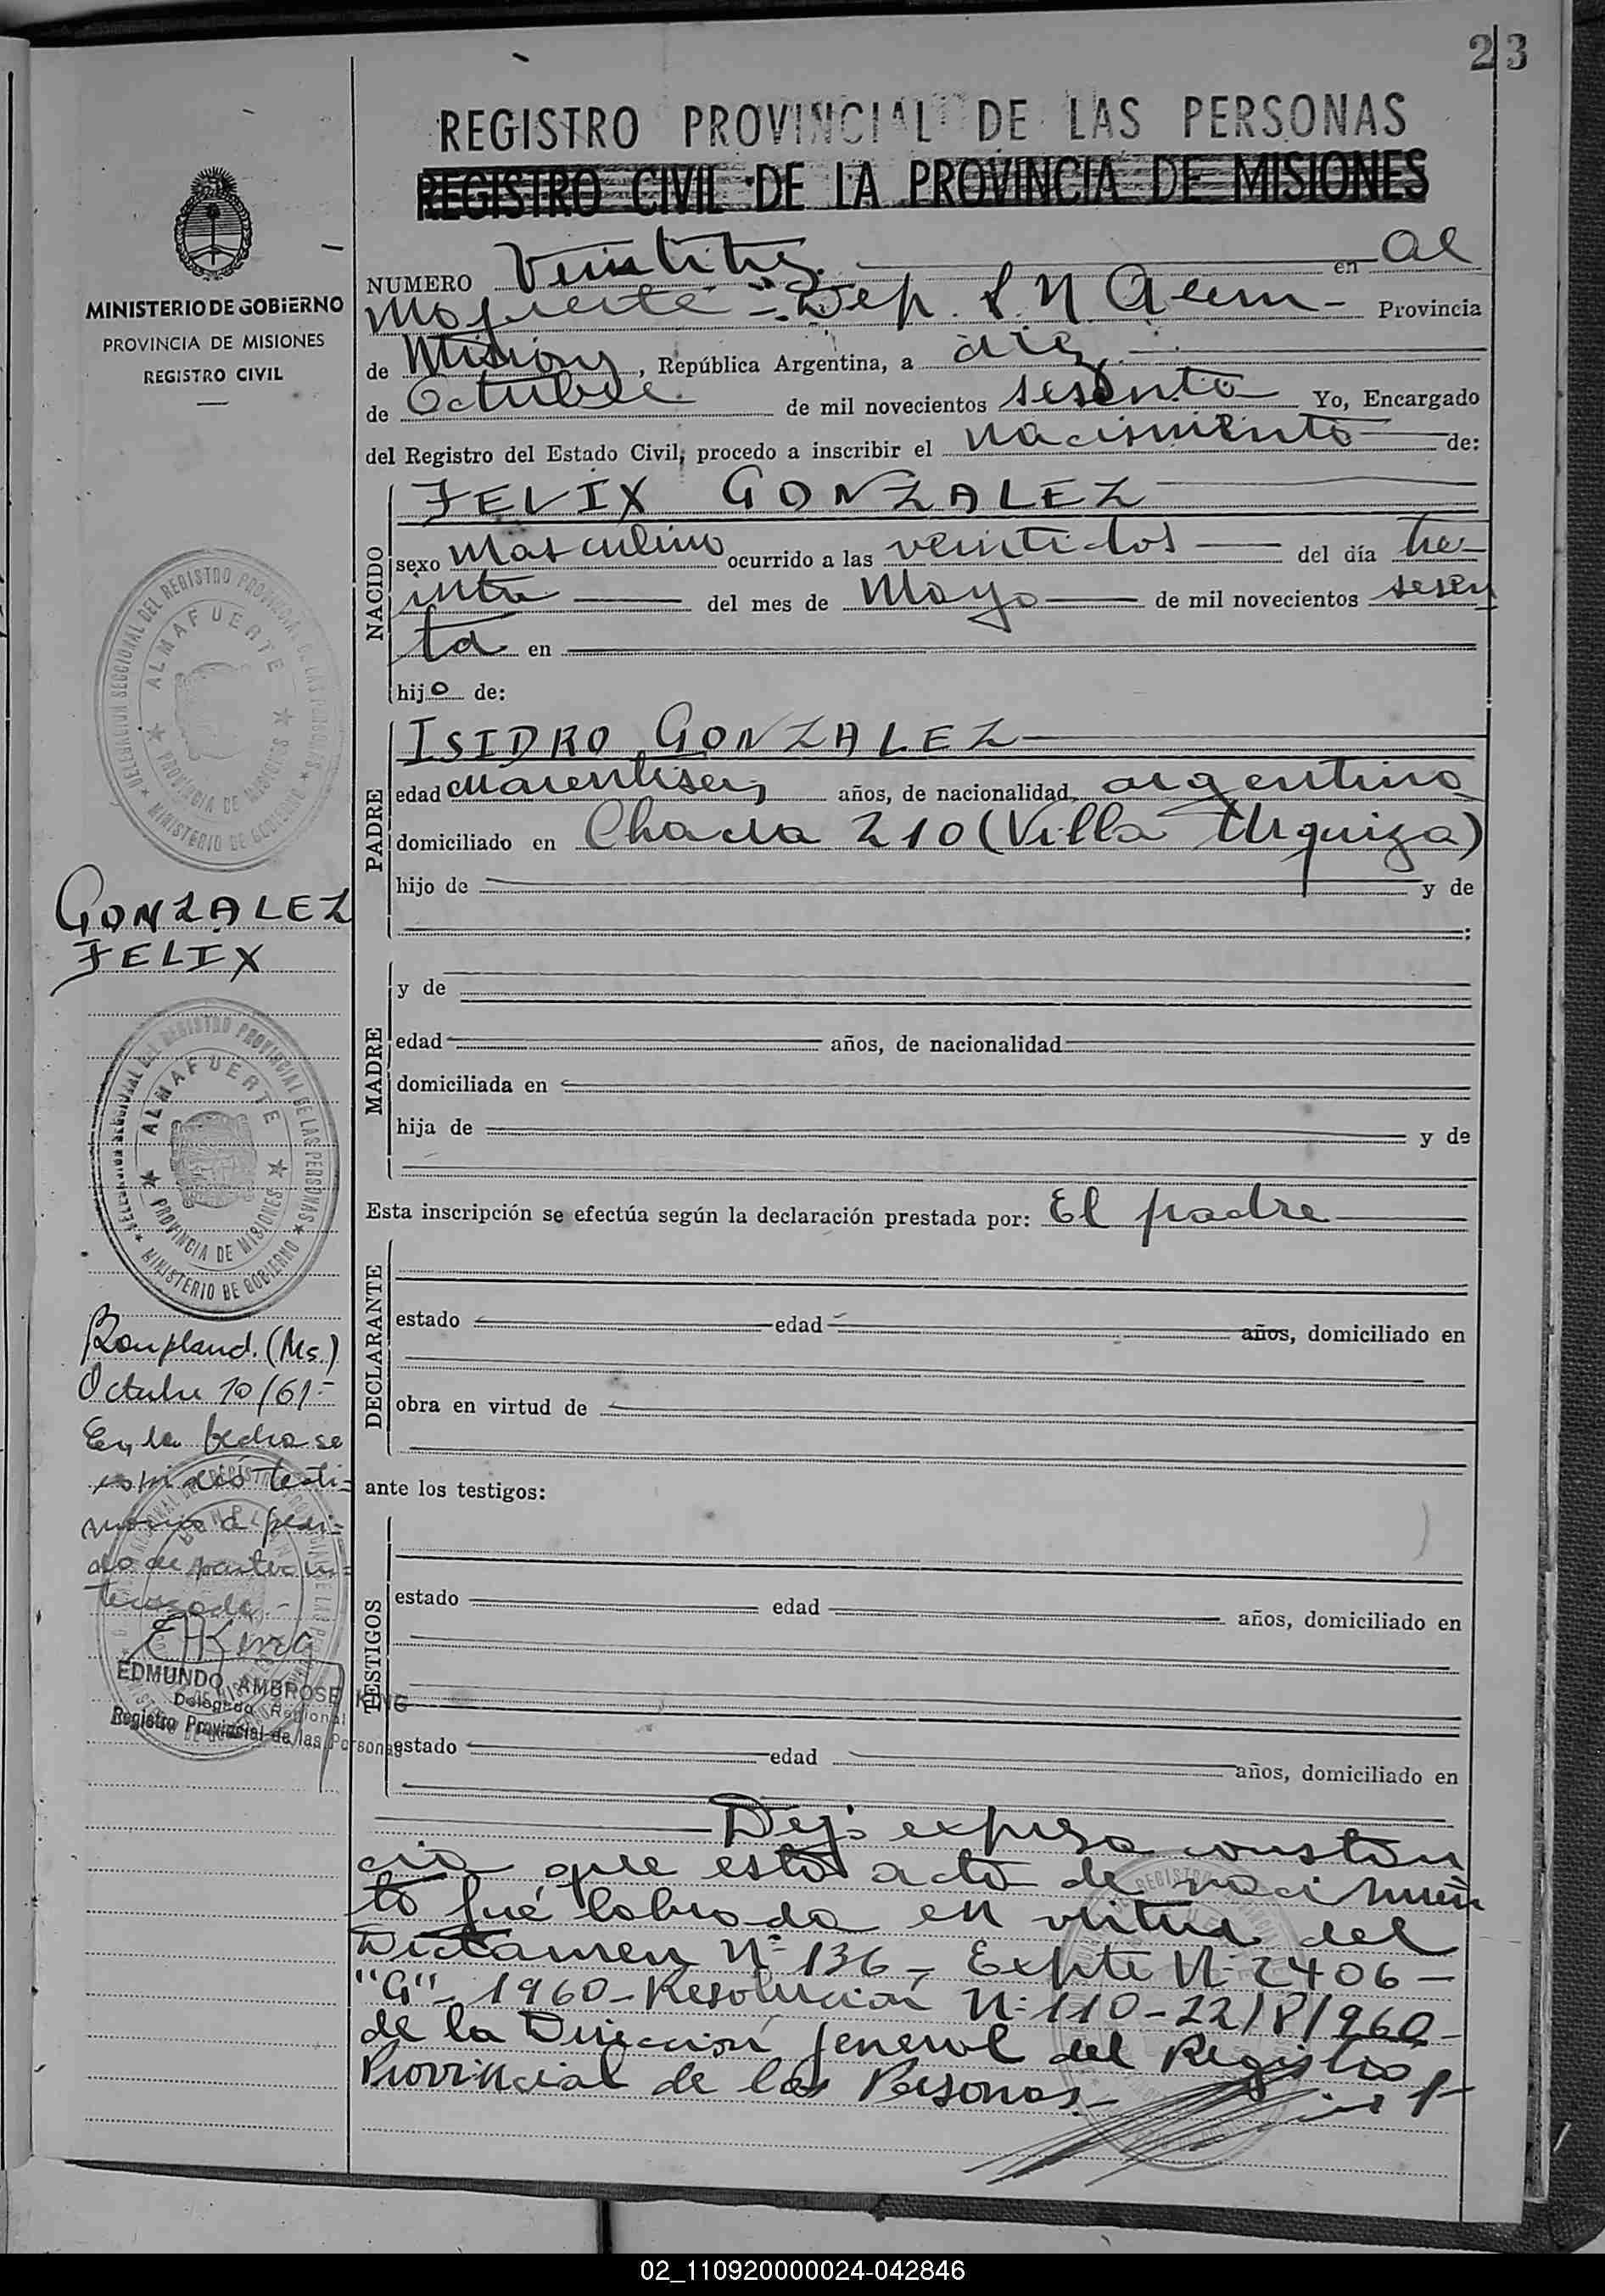 23
REGISTRO PROVINCIAL DE LAS PERSONAS
REGISTRO CIVIL DE LA PROVINCIA DE MISIONES
MINISTERIO DE GOBIERNO
PROVINCIA DE MISIONES
REGISTRO CIVIL
NUMERO Veintitres en Al
mafuerte - Dep. L. N. Alem - Provincia
de Misiones, República Argentina, a diez
de Octubre de mil novecientos sesenta Yo, Encargado
del Registro del Estado Civil, procedo a inscribir el nacimiento de:
NACIDO
FELIX GONZALEZ
sexo Masculino ocurrido a las veintidos del día tre
inta del mes de Mayo de mil novecientos sesen
ta en
hijo de:
PADRE
ISIDRO GONZALEZ
edad cuarentiseis años, de nacionalidad argentino
domiciliado en Chacra 210 (Villa Urquiza)
hijo de y de
MADRE
y de
edad años, de nacionalidad
domiciliada en
hija de y de
Esta inscripción se efectúa según la declaración prestada por: El padre
DECLARANTE
estado edad años, domiciliado en
obra en virtud de
ante los testigos:
TESTIGOS
estado edad años, domiciliado en
estado edad años, domiciliado en
Dejo expresa constan
cia que esta acta de nacimien
to fué labrada en virtud del
Dictamen Nº 136 - Expte Nº 2406 -
"G" - 1960 - Resolucion Nº 110 - 22/8/960 -
de la Direccion General del Registro
Provincial de las Personas.-
DELEGACION SECCIONAL DEL REGISTRO PROVINCIAL DE LAS PERSONAS
ALMAFUERTE
PROVINCIA DE MISIONES
MINISTERIO DE GOBIERNO
GONZALEZ
FELIX
DELEGACION SECCIONAL DEL REGISTRO PROVINCIAL DE LAS PERSONAS
ALMAFUERTE
PROVINCIA DE MISIONES
MINISTERIO DE GOBIERNO
Bonpland. (Ms.)
Octubre 10/61.-
En la fecha se
testi-
monio a pedi-
do de parte in-
teresada.-
EAKing
EDMUNDO AMBROSE KING
Delegado Regional
Registro Provincial de las Personas
02_110920000024-042846